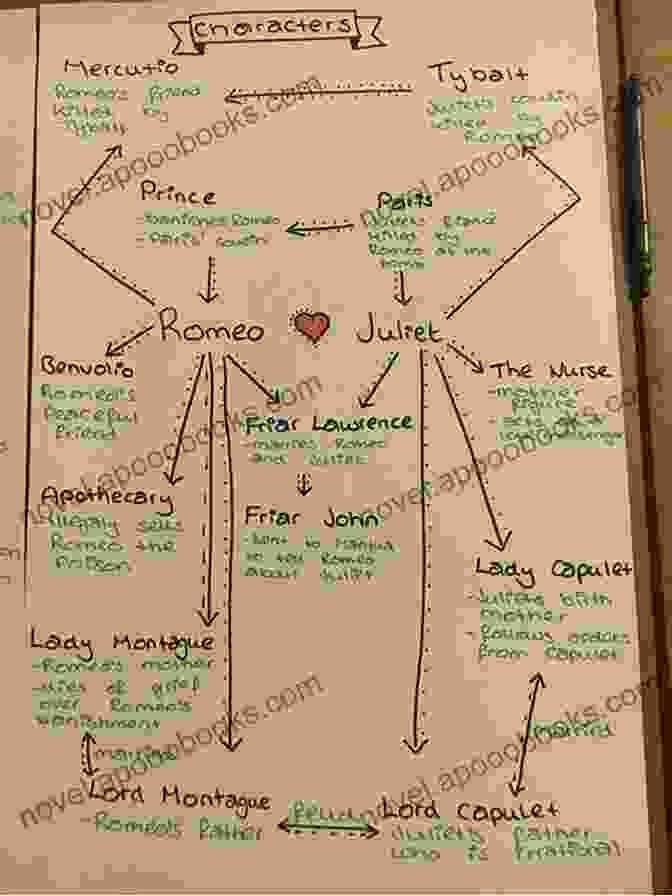 Characters
Mercutio
Romeo's friend
killed by
Tybalt
Tybalt
Juliet's cousin
killed by
Romeo
Prince
- banishes Romeo
- Paris' cousin
Paris
Juliet's fiancé
killed by
Romeo at the
tomb
Romeo
Juliet
Benvolio
Romeo's
peaceful
friend
The Nurse
- mother
figure
- acts as a
love messenger
Friar Lawrence
- marries Romeo
and Juliet
Apothecary
illegally sells
Romeo the
poison
Friar John
- Sent to Mantua
to tell Romeo
about Juliet
Lady Capulet
- Juliet's birth
mother
- Follows orders
from Capulet
Lady Montague
- Romeo's mother
- dies of grief
over Romeo's
banishment
married
married
Lord Montague
- Romeo's father
feud
Lord Capulet
Juliet's father
who is irrational
novel.apooobooks.com
novel.apooobooks.com
novel.apooobooks.com
novel.apooobooks.com
novel.apooobooks.com
novel.apooobooks.com